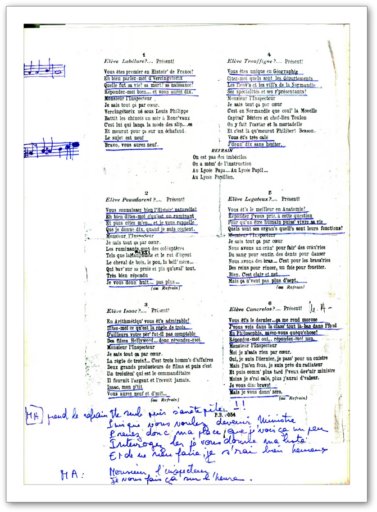 1
Elève Labélure?... Présent!
Vous êtes premier en Histoir' de France!
Eh bien parlez-moi d'Vercingétorix
Quelle fut sa vie? sa mort? sa naissance?
Répondez-moi bien... et vous aurez dix.
Monsieur l'Inspecteur
Je sais tout ça par cœur.
Vercingétorix né sous Louis Philippe
Battit les chinois un soir à Ronc'vaux
C'est lui qui lança la mode des slip... es
Et mourut pour ça sur un échafaud
Le sujet est neuf
Bravo, vous aurez neuf.
4
Elève Trouffigne?... Présent!
Vous êtes unique en Géographie
Citez-moi quels sont les départements
Les fleuv's et les vill's de la Normandie
Ses spécialités et ses r'présentants?
Monsieur l'Inspecteur
Je sais tout ça par cœur
C'est en Normandie que coul' la Moselle
Capital' Béziers et chef-lieu Toulon
On y fait l'caviar et la mortadelle
Et c'est là qu'mourut Philibert Besson.
Vous êt's très calé
J'donn' dix sans hésiter.
REFRAIN
On est pas des imbéciles
On a mêm' de l'instruction
Au Lycée Papa... Au Lycée Papil...
Au Lycée Papillon.
2
Elève Peaudarent?... Présent!
Vous connaissez bien l'Histoir' naturelle?
Eh bien dites-moi c'qu'est un ruminant
Et puis citez-m'en... et je vous rappelle
Que je donne dix, quand je suis content.
Monsieur l'Inspecteur
Je sais tout ça par cœur.
Les ruminants sont des coléoptères
Tels que la langouste et le rat d'égout
Le cheval de bois, la pou, la bell' mère...
Qui bav' sur sa proie et pis qu'aval' tout.
Très bien répondu
Je vous donn' huit... pas plus...
(au Refrain)
5
Elève Legateux?... Présent!
Vous êt's le meilleur en Anatomie!
Répondez j'vous prie à cette question
Pour qu'un être humain puiss' vivre sa vie
Quels sont ses organ's quell's sont leurs fonctions?
Monsieur l'Inspecteur
Je sais tout ça par cœur.
Nous avons un crân' pour fair' des crân'ries
Du sang pour sentir des dents pour danser
Nous avons des bras... C'est pour les brass'ries
Des reins pour rincer, un foie pour fouetter.
Bien. C'est clair et net.
Mais ça n'vaut pas plus d'sept.
(au Refrain)
3
Elève Isaac?... Présent!
En arithmétiqu' vous êt's admirable!
Dites-moi ce qu'est la règle de trois
D'ailleurs votre pèr' fut-il pas comptable
Des films Hollywood... donc répondez-moi.
Monsieur l'Inspecteur
Je sais tout ça par cœur.
La règle de trois?... C'est trois homm's d'affaires
Deux grands producteurs de films et puis c'est
Un troisièm' qui est le commanditaire
Il fournit l'argent et l'revoit jamais.
Isaac, mon p'tit
Vous aurez neuf et d'mi!...
(au Refrain)
6
Elève Cancrelas?... Présent!
Vous êt's le dernier ça me rend morose
J'vous vois dans la class' tout là-bas dans l'fond
En Philosophie, savez-vous quéqu'chose?
Répondez-moi oui, répondez-moi non.
Monsieur l'Inspecteur
Moi je n'sais rien par cœur.
Oui, je suis l'dernier, je pass' pour un cuistre
Mais j'm'en fous, je suis près du radiateur
Et puis comm' plus tard j'veux dev'nir ministre
Moins je s'rai calé, plus j'aurai d'valeur.
Je vous dis: bravo!
Mais je vous donn' zéro.
(au Refrain)
MA prend le refrain puis s'arrête pile !!
Puisque vous voulez devenir Ministre
Prenez donc ma place, que j'vois ça un peu
Interrogez les je vous donne ma liste
Et de ne rien faire, je s'rai bien heureux
MA: Monsieur l'inspecteur
Je vous fais ça sur l'heure.